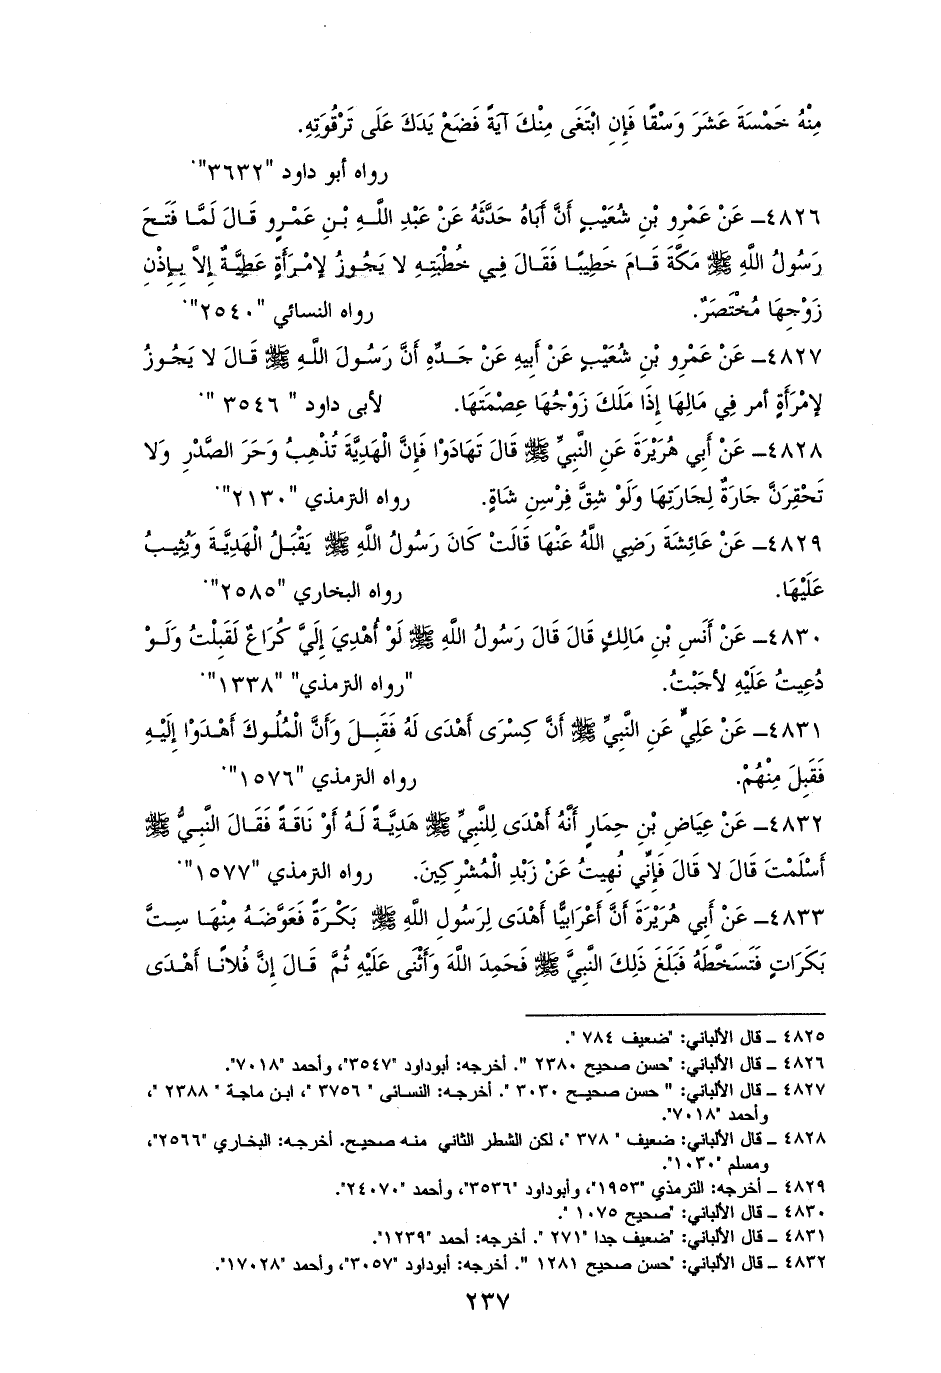 مِنْهُ خَمْسَةَ عَشَرَ وَسْقًا فَإِنِ ابْتَغَى مِنْكَ آيَةً فَضَعْ يَدَكَ عَلَى تَرْقُوَتِهِ.
رواه أبو داود "٣٦٣٢".
٤٨٢٦ــ عَنْ عَمْرِو بْنِ شُعَيْبٍ أَنَّ أَبَاهُ حَدَّثَهُ عَنْ عَبْدِ اللَّهِ بْنِ عَمْرٍو قَالَ لَمَّا فَتَحَ
رَسُولُ اللَّهِ ﷺ مَكَّةَ قَامَ خَطِيبًا فَقَالَ فِي خُطْبَتِهِ لا يَجُوزُ لإمْرَأَةٍ عَطِيَّةٌ إلاَّ بِإِذْنِ
زَوْجِهَا مُخْتَصَرٌ. رواه النسائي "٢٥٤٠".
٤٨٢٧ــ عَنْ عَمْرِو بْنِ شُعَيْبٍ عَنْ أَبِيهِ عَنْ جَدِّهِ أَنَّ رَسُولَ اللَّهِ ﷺ قَالَ لا يَجُوزُ
لإمْرَأَةٍ أمر فِي مَالِهَا إِذَا مَلَكَ زَوْجُهَا عِصْمَتَهَا. لأبى داود " ٣٥٤٦ ".
٤٨٢٨ــ عَنْ أَبِي هُرَيْرَةَ عَنِ النَّبِيِّ ﷺ قَالَ تَهَادَوْا فَإِنَّ الْهَدِيَّةَ تُذْهِبُ وَحَرَ الصَّدْرِ وَلا
تَحْقِرَنَّ جَارَةٌ لِجَارَتِهَا وَلَوْ شِقَّ فِرْسِنِ شَاةٍ. رواه الترمذي "٢١٣٠".
٤٨٢٩ــ عَنْ عَائِشَةَ رَضِي اللَّهُ عَنْهَا قَالَتْ كَانَ رَسُولُ اللَّهِ ﷺ يَقْبَلُ الْهَدِيَّةَ وَيُثِيبُ
عَلَيْهَا. رواه البخاري "٢٥٨٥".
٤٨٣٠ــ عَنْ أَنَسِ بْنِ مَالِكٍ قَالَ قَالَ رَسُولُ اللَّهِ ﷺ لَوْ أُهْدِيَ إِلَيَّ كُرَاعٌ لَقَبِلْتُ وَلَوْ
دُعِيتُ عَلَيْهِ لأَجَبْتُ. "رواه الترمذي" "١٣٣٨".
٤٨٣١ــ عَنْ عَلِيٍّ عَنِ النَّبِيِّ ﷺ أَنَّ كِسْرَى أَهْدَى لَهُ فَقَبِلَ وَأَنَّ الْمُلُوكَ أَهْدَوْا إِلَيْهِ
فَقَبِلَ مِنْهُمْ. رواه الترمذي "١٥٧٦".
٤٨٣٢ــ عَنْ عِيَاضِ بْنِ حِمَارٍ أَنَّهُ أَهْدَى لِلنَّبِيِّ ﷺ هَدِيَّةً لَهُ أَوْ نَاقَةً فَقَالَ النَّبِيُّ ﷺ
أَسْلَمْتَ قَالَ لا قَالَ فَإِنِّي نُهِيتُ عَنْ زَبْدِ الْمُشْرِكِينَ. رواه الترمذي "١٥٧٧".
٤٨٣٣ــ عَنْ أَبِي هُرَيْرَةَ أَنَّ أَعْرَابِيًّا أَهْدَى لِرَسُولِ اللَّهِ ﷺ بَكْرَةً فَعَوَّضَهُ مِنْهَا سِتَّ
بَكَرَاتٍ فَتَسَخَّطَهُ فَبَلَغَ ذَلِكَ النَّبِيَّ ﷺ فَحَمِدَ اللَّهَ وَأَثْنَى عَلَيْهِ ثُمَّ قَالَ إِنَّ فُلانًا أَهْدَى
٤٨٢٥ ــ قال الألباني: "ضعيف ٧٨٤ ".
٤٨٢٦ ــ قال الألباني: "حسن صحيح ٢٣٨٠ ". أخرجه: أبوداود "٣٥٤٧"، وأحمد "٧٠١٨".
٤٨٢٧ ــ قال الألباني: " حسن صحيح ٣٠٣٠ ". أخرجه: النسائى " ٣٧٥٦ "، ابن ماجة " ٢٣٨٨ "،
وأحمد "٧٠١٨".
٤٨٢٨ ــ قال الألباني: ضعيف " ٣٧٨ "، لكن الشطر الثاني منه صحيح. أخرجه: البخاري "٢٥٦٦"،
ومسلم "١٠٣٠".
٤٨٢٩ ــ أخرجه: الترمذي "١٩٥٣"، وأبوداود "٣٥٣٦"، وأحمد "٢٤٠٧٠".
٤٨٣٠ ــ قال الألباني: "صحيح ١٠٧٥ ".
٤٨٣١ ــ قال الألباني: "ضعيف جدا "٢٧١ ". أخرجه: أحمد "١٢٣٩".
٤٨٣٢ ــ قال الألباني: "حسن صحيح ١٢٨١ ". أخرجه: أبوداود "٣٠٥٧"، وأحمد "١٧٠٢٨".
٢٣٧